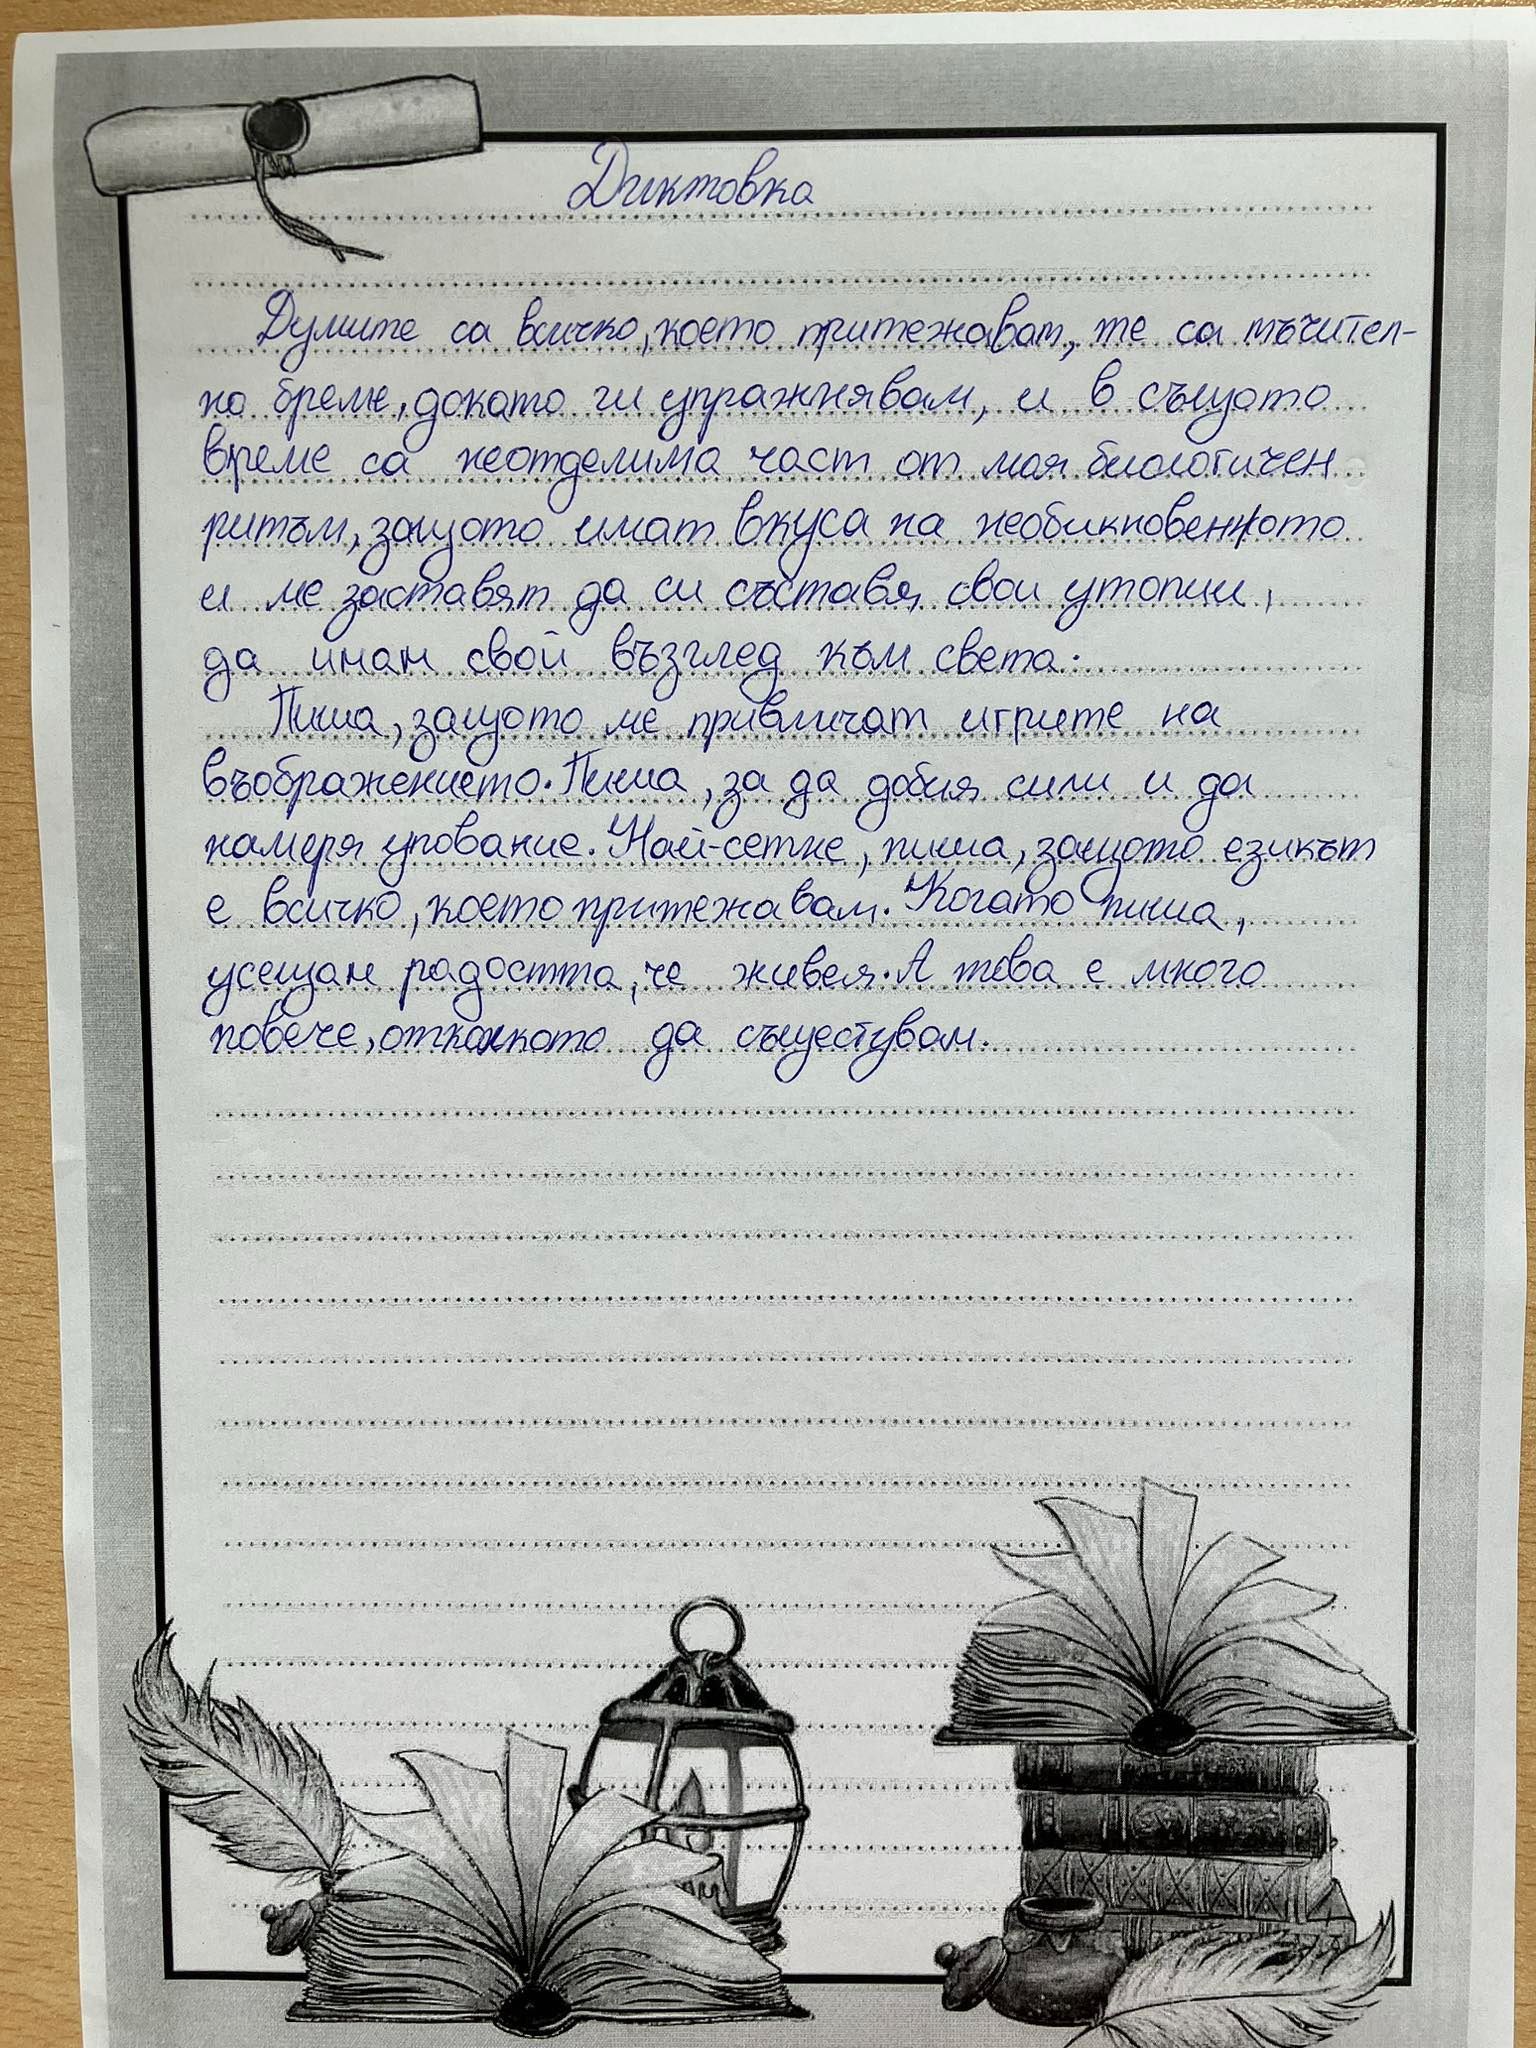 Диктовка
Думите са всичко, което притежавам, те са мъчител-
но бреме, докато ги упражнявам, и в същото
време са неотделима част от моя биологичен
ритъм, защото имат вкуса на необикновеното
и ме заставят да си съставя свои утопии,
да имам свой възглед към света.
Пиша, защото ме привличат игрите на
въображението. Пиша, за да добия сили и да
намеря упование. Най-сетне, пиша, защото езикът
е всичко, което притежавам. Когато пиша,
усещам радостта, че живея. А това е много
повече, отколкото да съществувам.